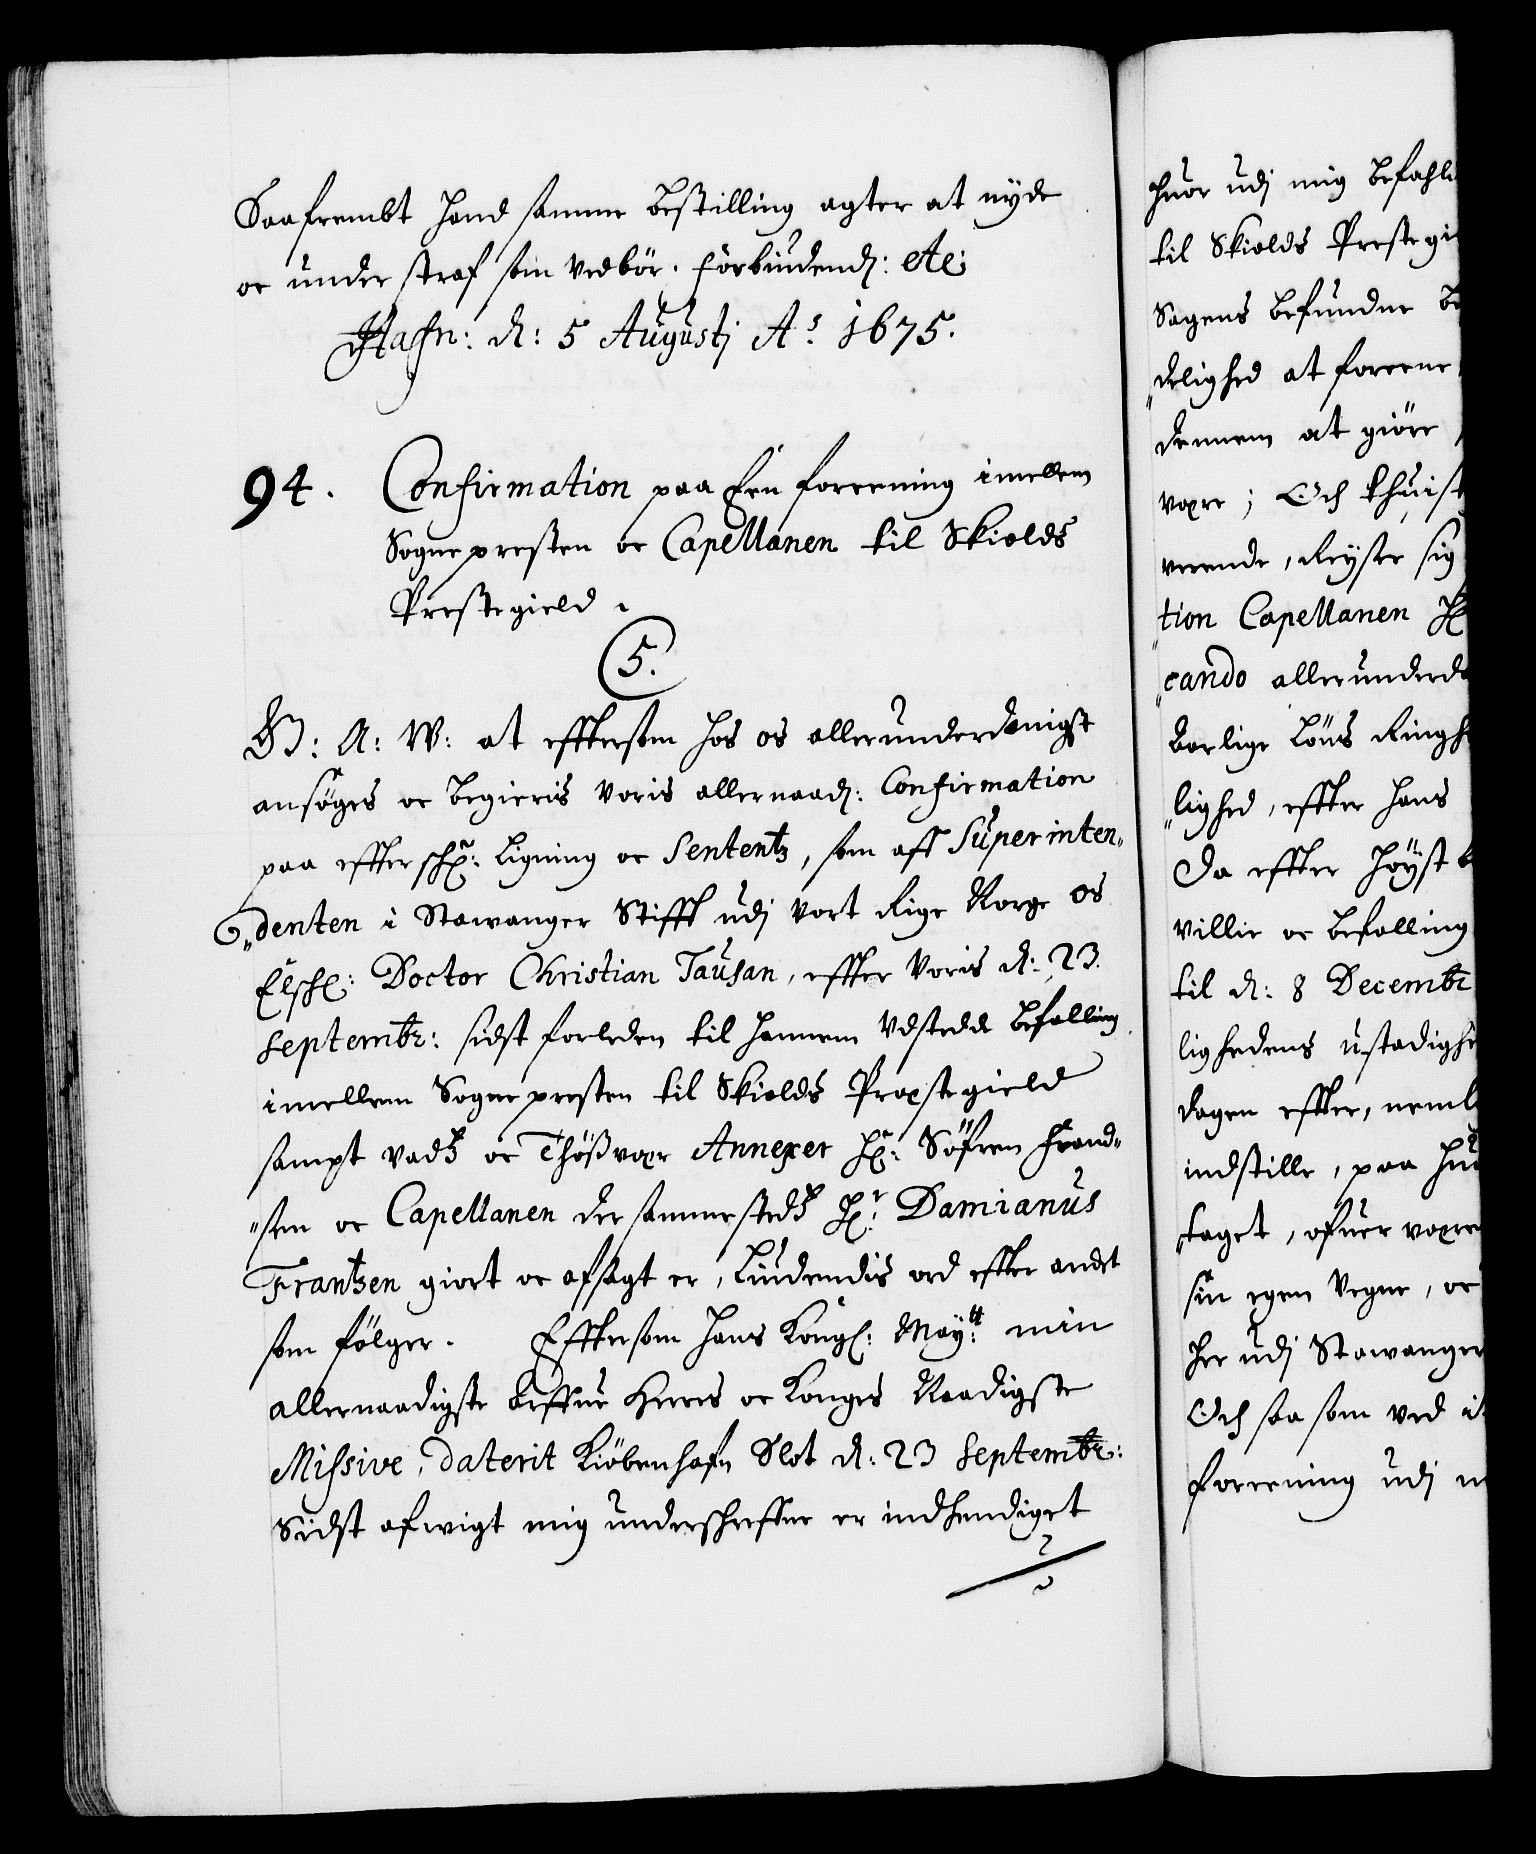 Saafrembt hand samme bestilling agter at nyde
oc under straf som vedbör. Forbindend: etc:
Hafn: d: 5 Augustj Aº 1675.
94. Confirmation paa Een foreening imellem
Sognepresten oc Capellanen til Skiolds
Prestegield.
5.
G: A: W: at effterson hos os allerunderdanigst
ansöges oc begieris Voris allernaad: Confirmation
paa effterschr: ligning oc Sententz, som aff Superinten„
„denten i Stawanger Stifft udj Vort Rige Norge os
Elschl: Doctor Christian Tausan, effter Voris d: 23.
Septembr: sidst forleden til hannem Udstedde befalling
imellem Sognepresten til Skiolds Præstegield
sampt Vads oc Thößvær Annexer Hr: Söfren Frand„
„sen oc Capellanen dersammesteds Hr: Damianus
Frantzen giort oc afsagt er, Liudendis ord effter andet
som fölger. Efftersom hans Kongl: Maytt: min
allernaadigste Arffue Herres oc Konges Naadigste
Missive, daterit Kiöbenhafn Slot d: 23 Septembr:
Sidst afwigt mig underschreffne er indhendiget
huor udj mig befahle
til Skiolds Prestegi
Sagens befundne be
„delighed at foreene
dennem at giöre
være; Och thuist
verende, Reyste sig
tion Capellanen Hr
„cando allerunderda
barlige Löns Ringh
„lighed, effter hans
Da effter höyst b
villie oc befalling
til d: 8 Decembr
lighedens ustadighe
dagen effter, neml
indstille, paa hu
taget, ofuer være
sin egen Vegne, oc
her udj Stawanger
Och saa som ved it
foreening udj m